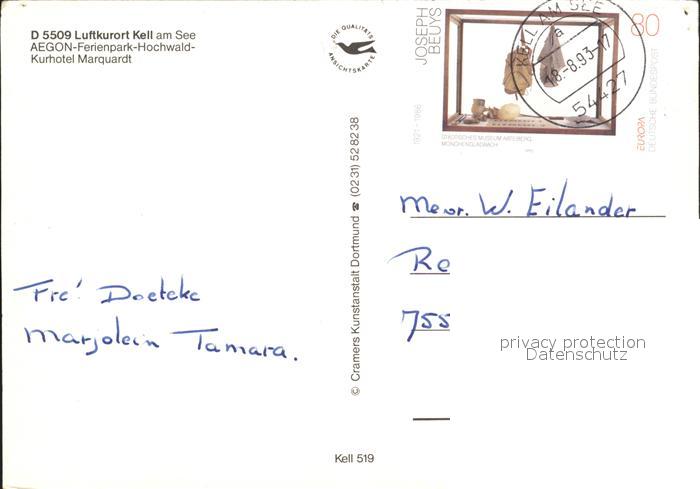 D 5509 Luftkurort Kell am See
AEGON-Ferienpark-Hochwald-
Kurhotel Marquardt
DIE QUALITÄTS
ANSICHTSKARTE
JOSEPH
BEUYS
1921-1986
80
STÄDTISCHES MUSEUM ABTEIBERG
MÖNCHENGLADBACH
EUROPA
DEUTSCHE BUNDESPOST
KELL AM SEE
a
18.-8.93-17
54427
© Cramers Kunstanstalt Dortmund ☎ (0231) 52 82 38
Mevr. W. Eilander
Re
755
Fré! Doeteke
Marjolein Tamara.
privacy protection
Datenschutz
Kell 519